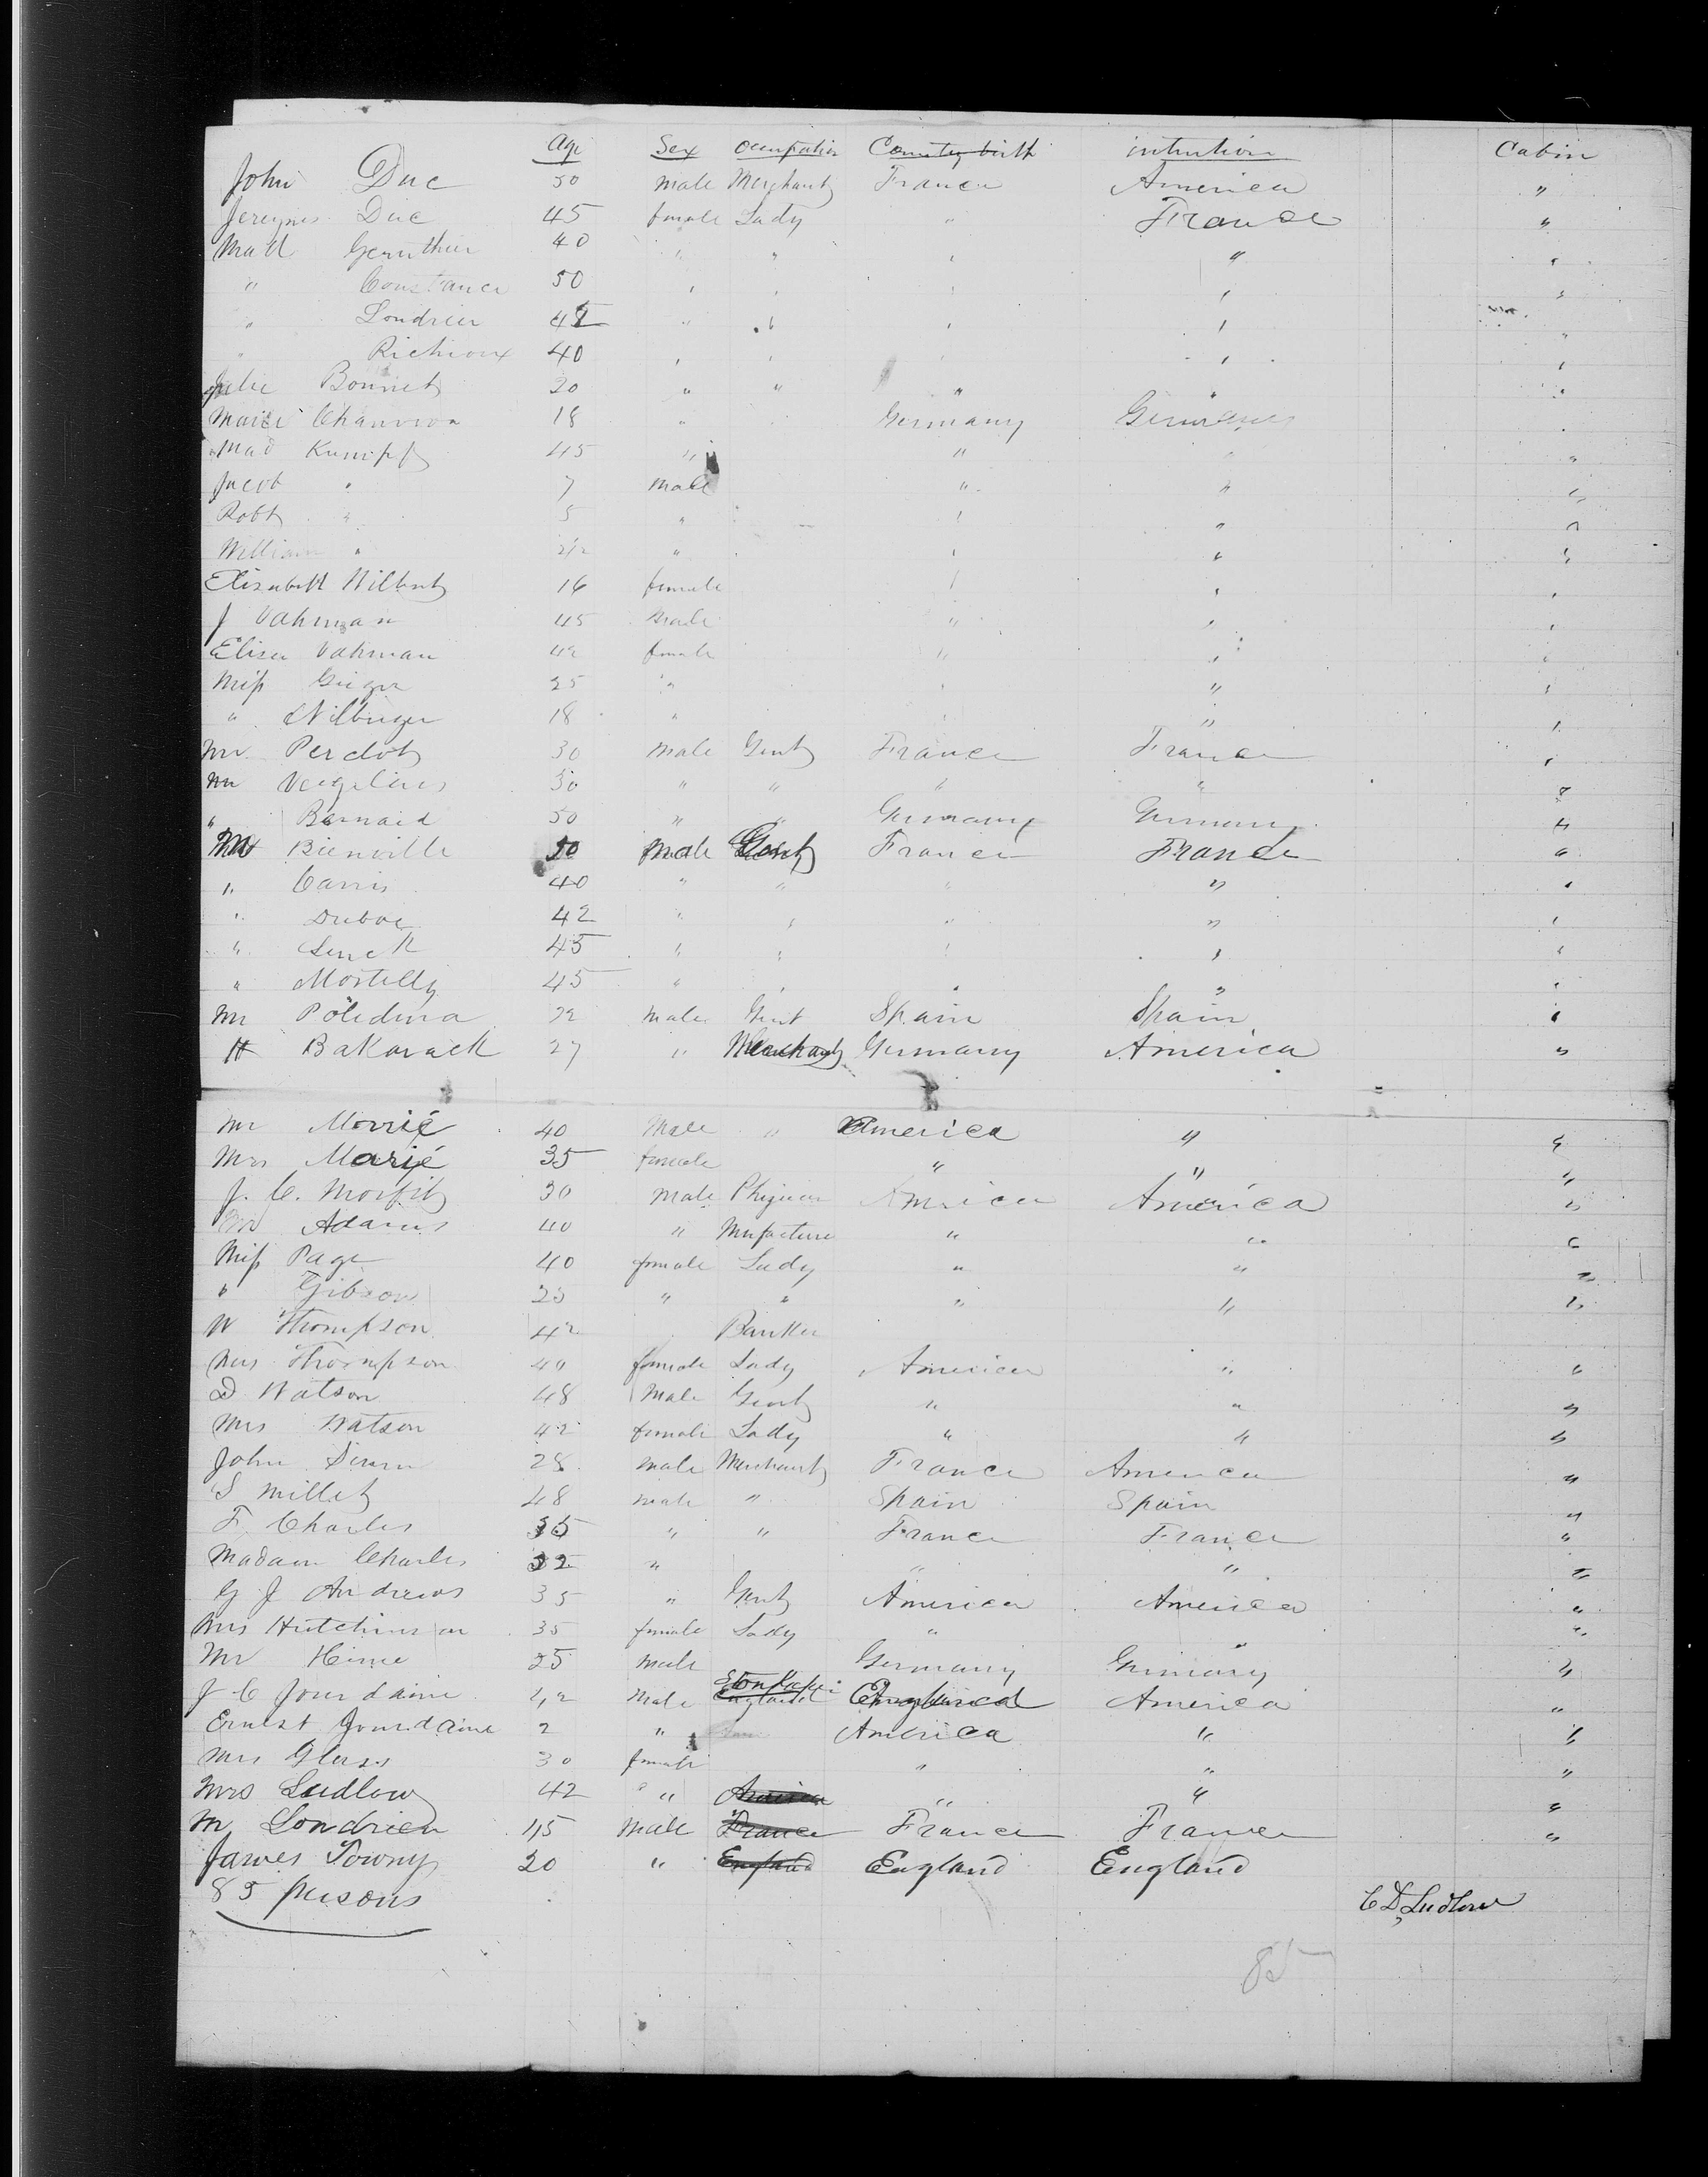 Age Sex Occupation Country birth intention Cabin
John Duc 50 male Merchant France America "
Duc 45 female Lady " France "
Mad Gerinthier 40 " " " " "
" Constance 50 " " " " "
" Londrier 48 " " " " "
" Richioux 40 " " " " "
Julie Bonnet 20 " " " " "
Marie Chanvron 18 " Germany Germany "
Mad Kumpf 45 " " " "
Jacob " 7 male " " "
Robt " 5 " " " "
William " 2½ " " " "
Elisabeth Wilbert 16 female " " "
J Vahman 45 male " " "
Elisa Vahman 42 female " " "
Miss Geiger 25 " " " "
" Wilberger 18 " " " "
Mr Perdot 30 male Gent France France "
Mr Vergelius 30 " " " " "
" Bernard 50 " " Germany Germany "
Mr Bienville 50 male Gent France France "
" Carris 40 " " " " "
" Duboc 42 " " " " "
" Linck 45 " " " " "
" Mostelly 45 " " " " "
Mr Poledura 22 male Gent Spain Spain "
H Bakarack 27 " Merchant Germany America "
Mr Morrié 40 Male " America " "
Mrs Marié 35 female " " "
J. C. Morfit 30 male America America "
Mr Adams 40 " Mnfacturer " " "
Miss Page 40 female Lady " " "
" Gibson 23 " " " " "
W Thompson 42 Banker
Mrs Thompson 40 female Lady America " "
D Watson 48 Male Gent " " "
Mrs Watson 42 female Lady " " "
John Simm 28 male Merchant France America "
S Millet 48 male " Spain Spain "
F. Charles 35 " " France France "
Madam Charles 32 " " " "
G J Andrews 35 " Gent America America "
Mrs Hutchinson 35 female Lady " " "
Mr Hime 25 male Germany Germany "
J C Jourdaine 42 male England England America "
Ernest Jourdaine 2 " America " "
Mrs Glass 30 female " " "
Mrs Ludlow 42 " America " " "
M Londrien 45 male France France France "
James Towny 20 " England England England
85 persons
C D, Ludlow
85